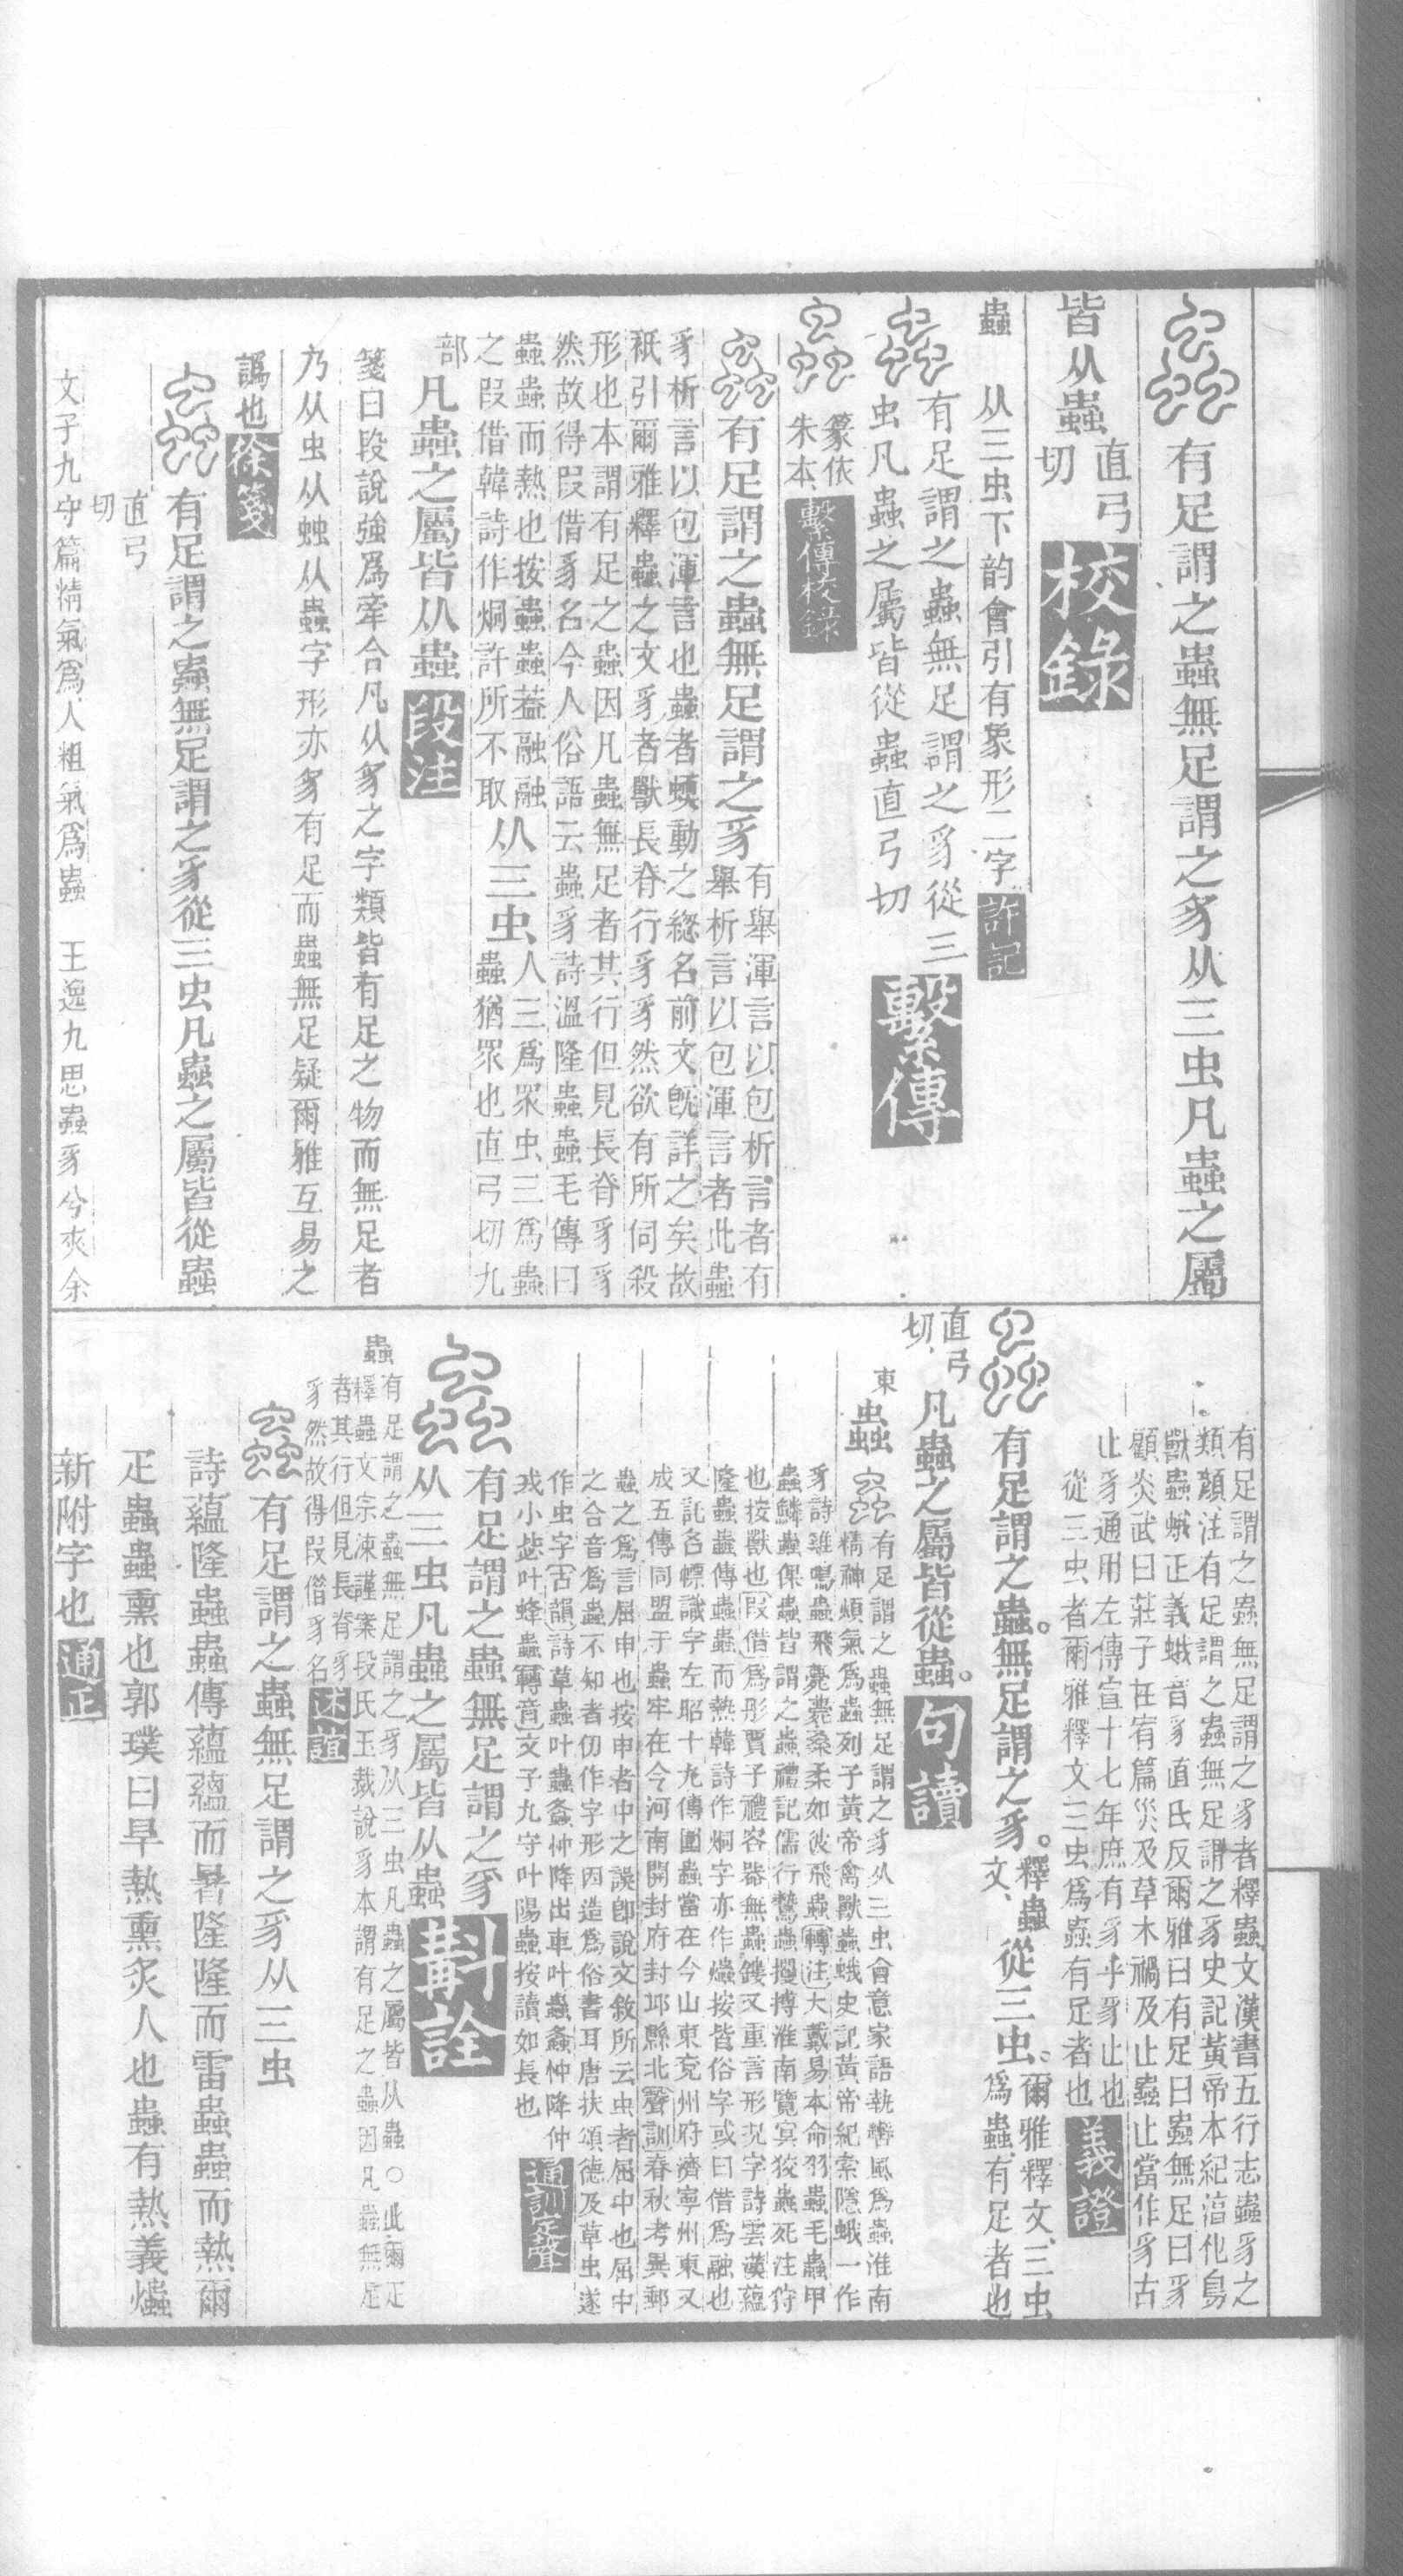 有足謂之蟲無足謂之豸从三虫凡蟲之屬
皆从蟲直弓切校錄
蟲 从三虫下韵會引有象形二字許記
有足謂之蟲無足謂之豸從三
虫凡蟲之屬皆從蟲直弓切繫傳
篆依朱本繫傳校錄
有足謂之蟲無足謂之豸有舉渾言以包析言者有舉析言以包渾言者此蟲
豸析言以包渾言也蟲者蝡動之緫名前文旣詳之矣故
祇引爾雅釋蟲之文豸者獸長脊行豸豸然欲有所伺殺
形也本謂有足之蟲因凡蟲無足者其行但見長脊豸豸
然故得叚借豸名今人俗語云蟲豸詩溫隆蟲蟲毛傳曰
蟲蟲而熱也按蟲蟲葢融融
之叚借韓詩作烔許所不取从三虫人三爲眾虫三爲蟲蟲猶眾也直弓切九
部凡蟲之屬皆从蟲段注
箋曰段說強爲牽合凡从豸之字類皆有足之物而無足者
乃从虫从䖵从蟲字形亦豸有足而蟲無足疑爾雅互易之
譌也徐箋
有足謂之蟲無足謂之豸從三虫凡蟲之屬皆從蟲
直弓切
文子九守篇情氣爲人粗氣爲蟲 王逸九思蟲豸兮夾余
有足謂之蟲無足謂之豸者釋蟲文漢書五行志蟲豸之
類顏注有足謂之蟲無足謂之豸史記黃帝本紀淳化鳥
獸蟲蛾正義蛾音豸直氏反爾雅曰有足曰蟲無足曰豸
顧炎武曰莊子在宥篇災及草木禍及止蟲止當作豸古
止豸通用左傳宣十七年庶有豸乎豸止也
從三虫者爾雅釋文三虫爲蟲有足者也義證
有足謂之蟲。無足謂之豸。釋蟲文、從三虫。爾雅釋文、三虫爲蟲、有足者也
直弓切、凡蟲之屬皆從蟲。句讀
東
蟲 有足謂之蟲無足謂之豸从三虫會意家語執轡風爲蟲淮南
精神煩氣爲蟲列子黃帝禽獸蟲蛾史記黃帝紀索隱蛾一作
豸詩雞鳴蟲飛薨薨桑柔如彼飛蟲轉注大戴易本命羽蟲毛蟲甲
蟲鱗蟲倮蟲皆謂之蟲禮記儒行鷙蟲攫搏淮南覽冥狡蟲死注狩
也按獸也叚借爲彤賈子禮容器無蟲鏤又重言形況字詩雲漢蘊
隆蟲蟲傳蟲蟲而熱韓詩作烔字亦作爞按皆俗字或曰借爲融也
又託名幖識字左昭十九傳圍蟲當在今山東兗州府濟寧州東又
成五傳同盟于蟲牢在今河南開封府封邱縣北聲訓春秋考異郵
蟲之爲言屈申也按申者中之誤卽說文敘所云虫者屈中也屈中
之合音爲蟲不知者仞作字形因造爲俗書耳唐扶頌德及草虫遂
作虫字古韻詩草蟲叶蟲螽忡降出車叶蟲螽忡降仲
戎小毖叶蜂蟲轉音文子九守叶陽蟲按讀如長也通訓定聲
有足謂之蟲無足謂之豸
从三虫凡蟲之屬皆从蟲斠詮
蟲 有足謂之蟲無足謂之豸从三虫凡蟲之屬皆从蟲○此爾疋
釋蟲文宗涑謹案段氏玉裁說豸本謂有足之蟲因凡蟲無足
者其行但見長脊豸
豸然故得叚借豸名述誼
有足謂之蟲無足謂之豸从三虫
詩蘊隆蟲蟲傳蘊蘊而暑隆隆而雷蟲蟲而熱爾
疋蟲蟲熏也郭璞曰旱熱熏炙人也蟲有熱義爞
新附字也通正